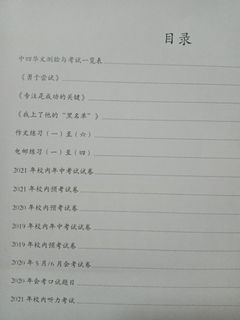 目录
中四华文测验与考试一览表
《勇于尝试》
《专注是成功的关键》
《我上了他的“黑名单”》
作文练习（一）至（六）
电邮练习（一）至（四）
2021年校内年中考试试卷
2021年校内预考试卷
2020年校内预考试卷
2019年校内年中考试试卷
2019年校内预考试卷
2020年5月/6月会考试卷
2020年会考口试题目
2021年校内听力考试